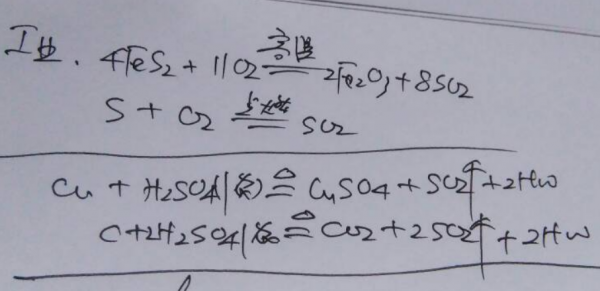 工业. 4FeS2 + 11O2 高温 2Fe2O3 + 8SO2
S + O2 点燃 SO2
Cu + H2SO4(浓) ≜ CuSO4 + SO2↑ + 2H2O
C + 2H2SO4(浓) ≜ CO2 + 2SO2↑ + 2H2O